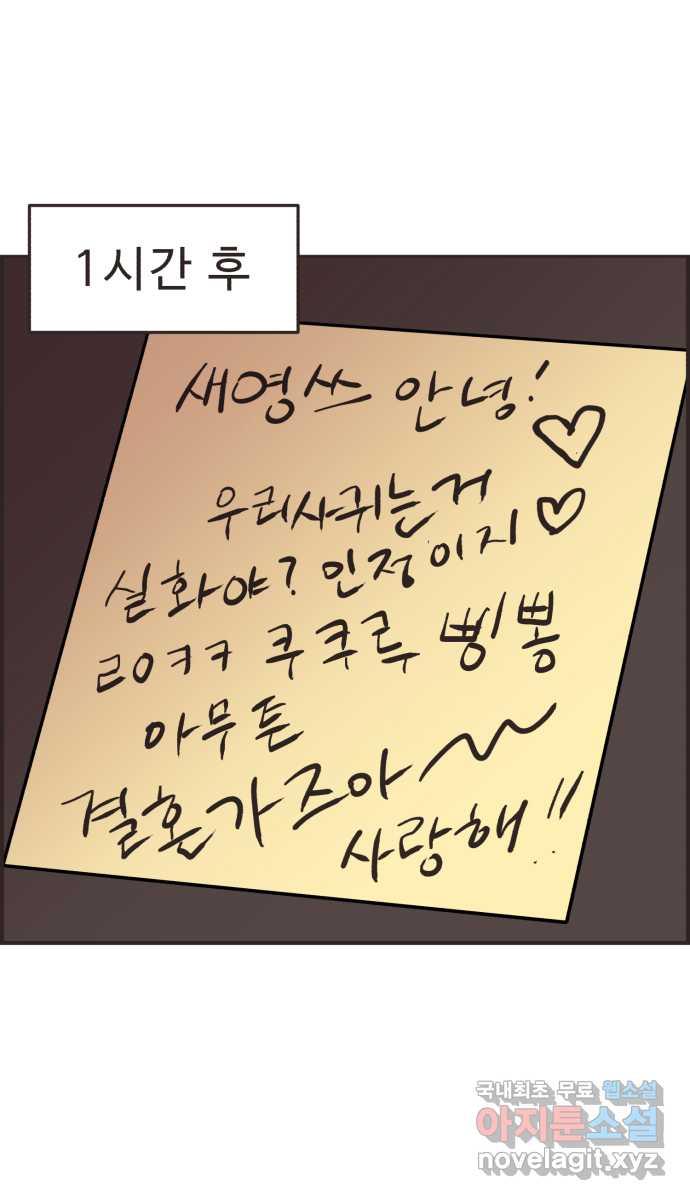 1시간 후
새영쓰 안녕!
우리사귀는거
실화야? 인정이지
ㄹㅇㅋㅋ 쿠쿠루 삥뽕
아무튼
결혼가즈아
사랑해!!
국내최초 무료 웹소설
아지툰소설
novelagit.xyz